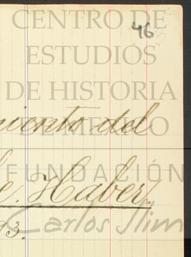 46
CENTRO DE
ESTUDIOS
DE HISTORIA
miento del
FUNDACIÓN
Haber.
Carlos Slim
3.